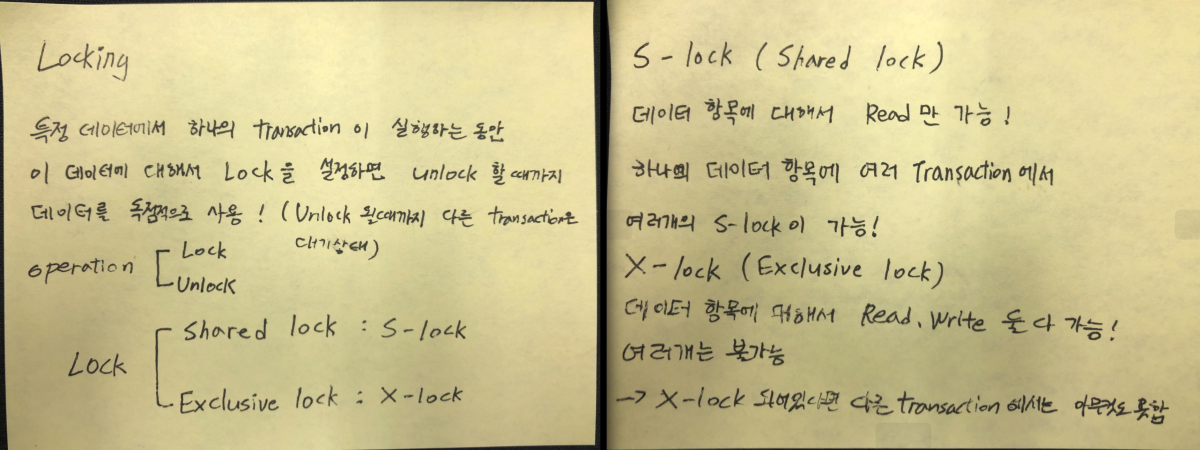 Locking
특정 데이터에서 하나의 transaction이 실행하는 동안
이 데이터에 대해서 Lock을 설정하면 unlock 할때까지
데이터를 독점적으로 사용! (Unlock 될때까지 다른 transaction은
대기상태)
operation
Lock
Unlock
Lock
Shared lock : S-lock
Exclusive lock : X-lock
S-lock (Shared lock)
데이터 항목에 대해서 Read만 가능!
하나의 데이터 항목에 여러 Transaction에서
여러개의 S-lock이 가능!
X-lock (Exclusive lock)
데이터 항목에 대해서 Read, Write 둘 다 가능!
여러개는 불가능
→ X-lock 되어있다면 다른 transaction에서는 아무것도 못함